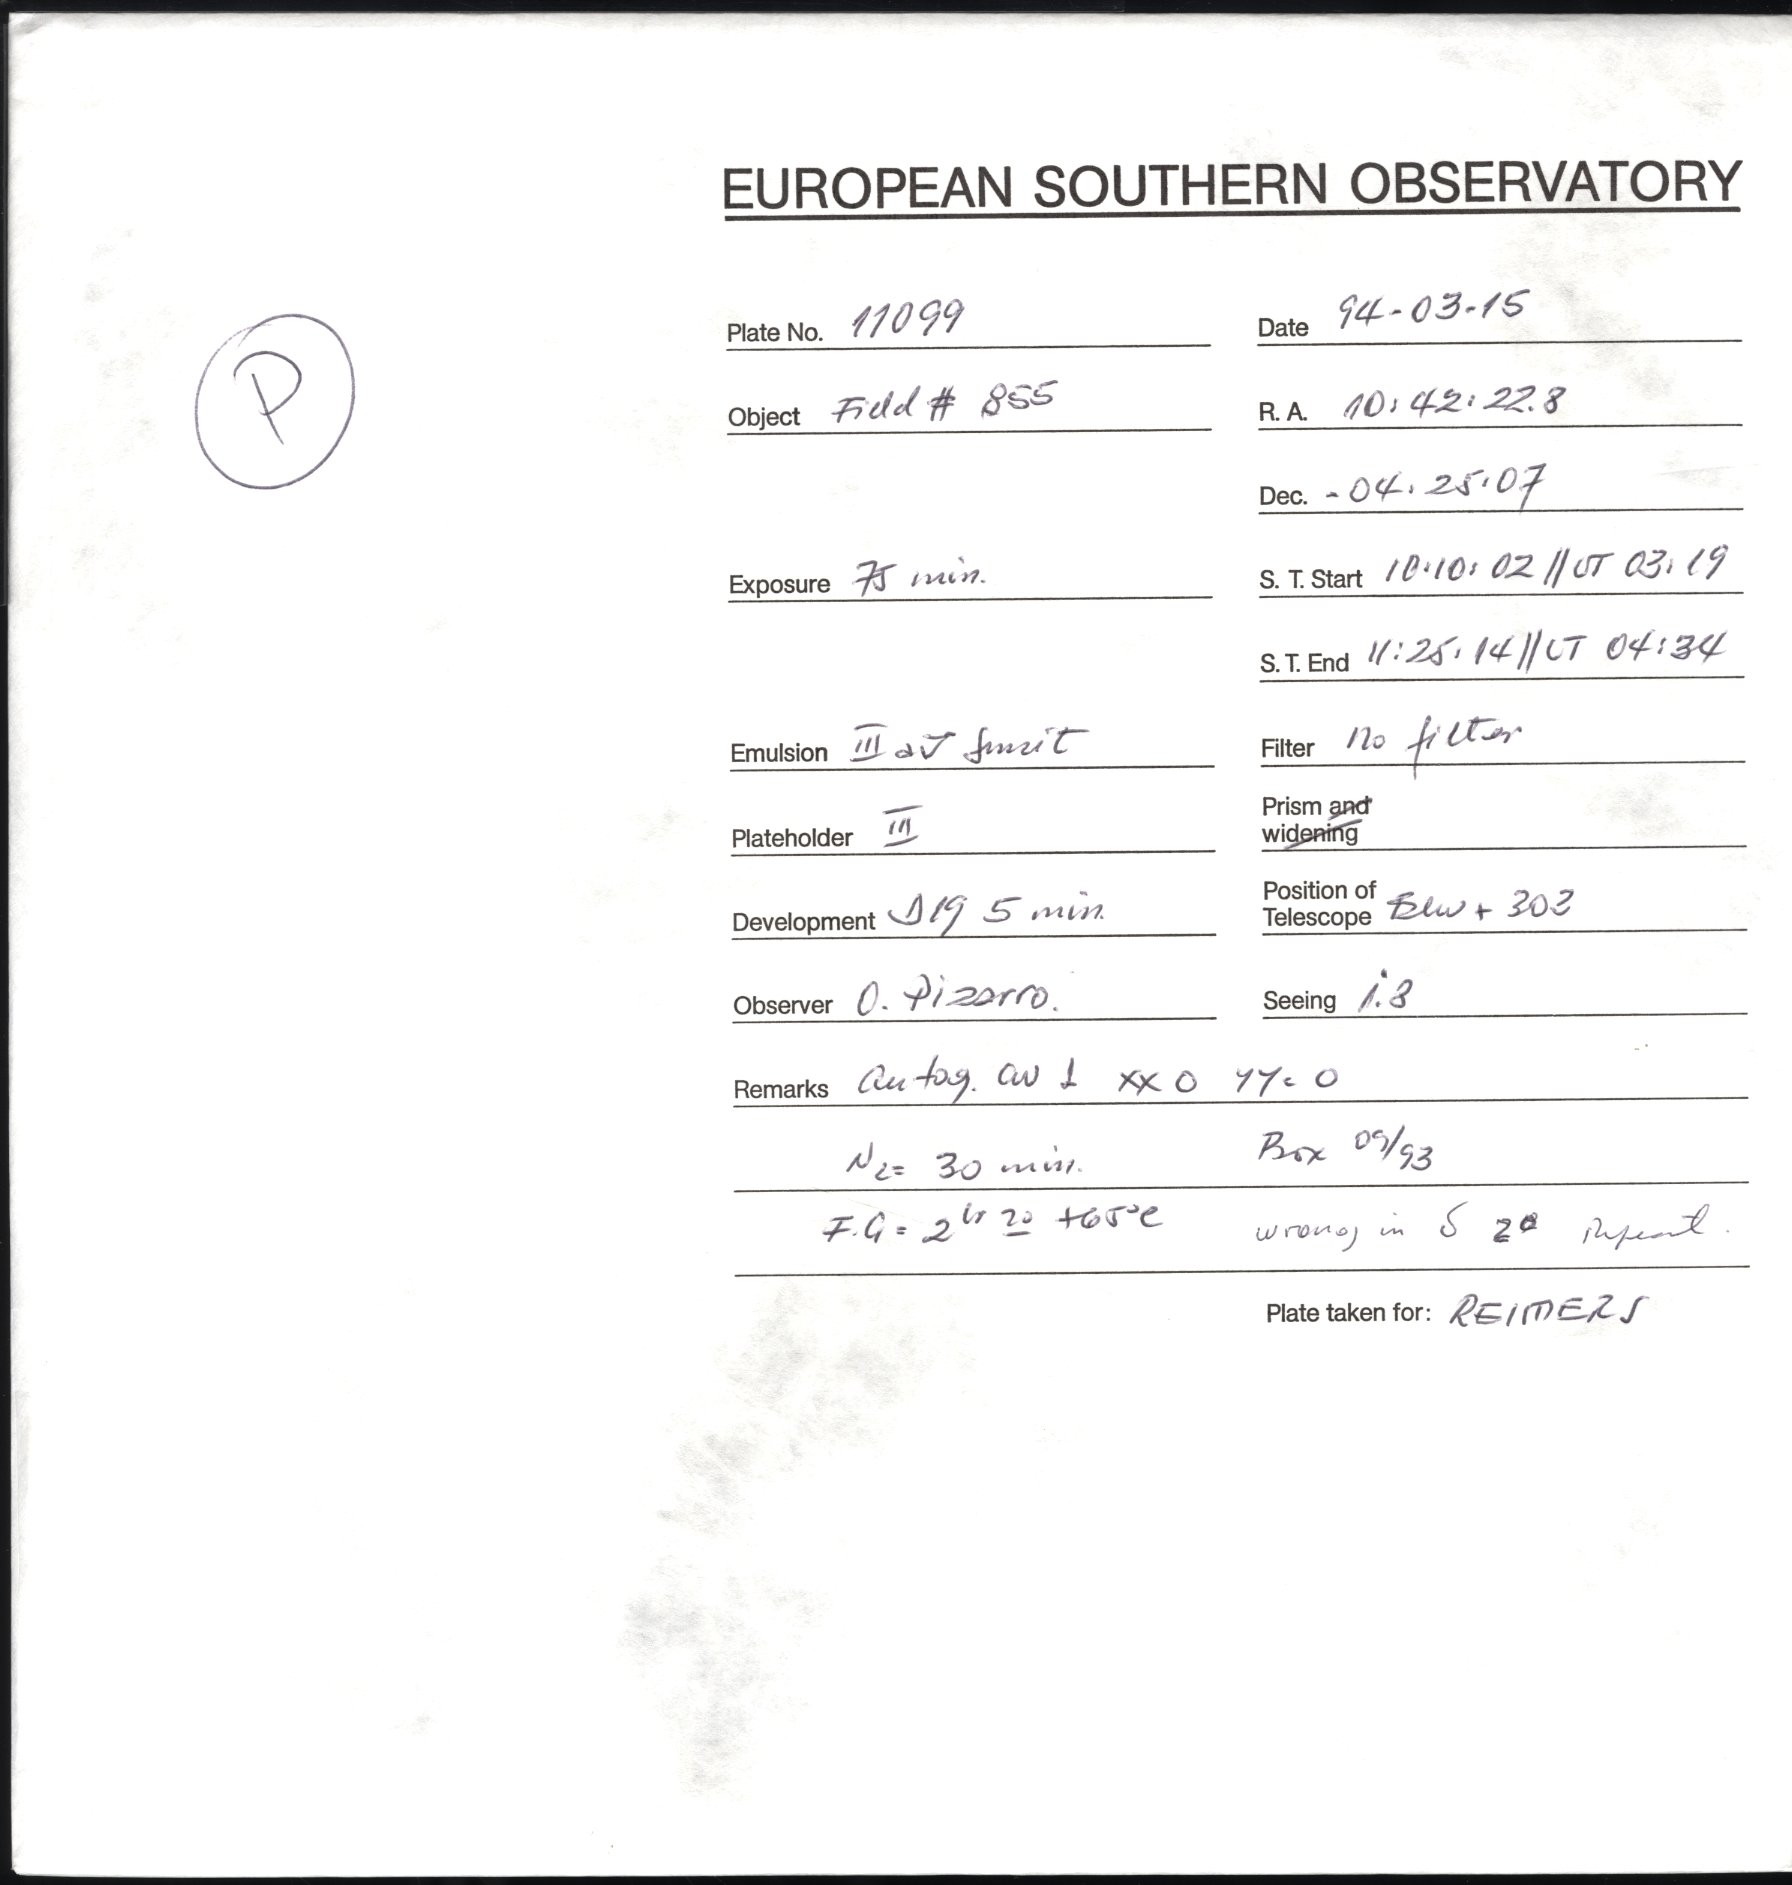 EUROPEAN SOUTHERN OBSERVATORY
P
Plate No. 11099 Date 94-03-15
Object Field # 855 R. A. 10:42:22.8
Dec. -04:25:07
Exposure 75 min. S. T. Start 10:10:02 // UT 03:19
S. T. End 11:25:14 // UT 04:34
Emulsion III aJ Filter no filter
Plateholder III Prism and
widening
Development D19 5 min. Position of
Telescope + 303
Observer O. Pizarro. Seeing 1.8
Remarks Autog. CW 1 XX 0 YY= 0
N2= 30 min. Box 09/93
F.G = 2hr 20 +65°C wrong in δ 2° repeat.
Plate taken for: REIMERS